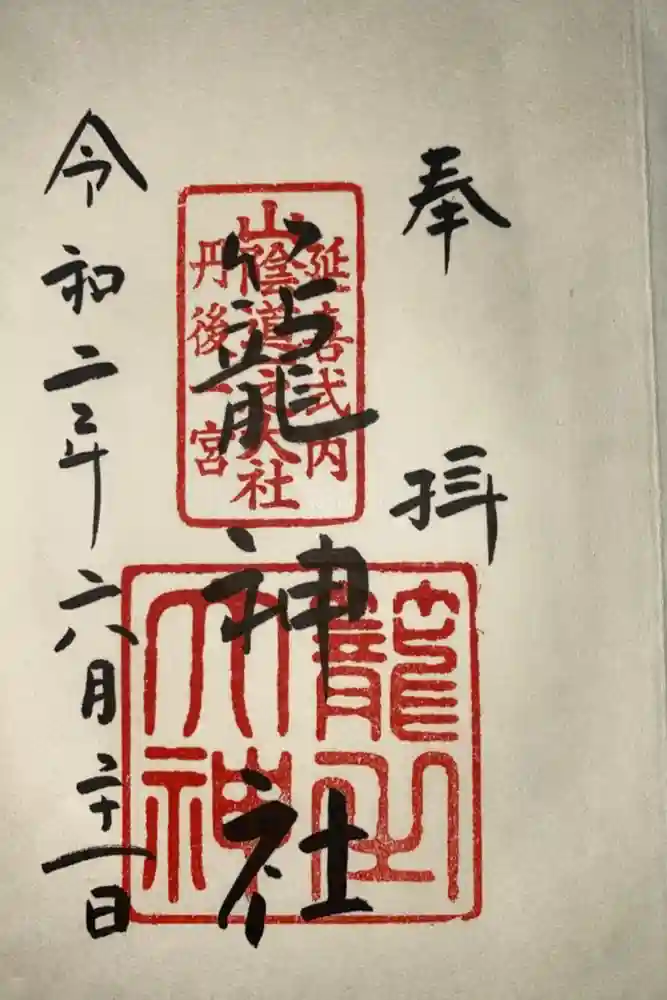 奉拝
延喜式内
山陰道一之大社
丹後一宮
籠神社
籠之大神
令和二年六月二十一日